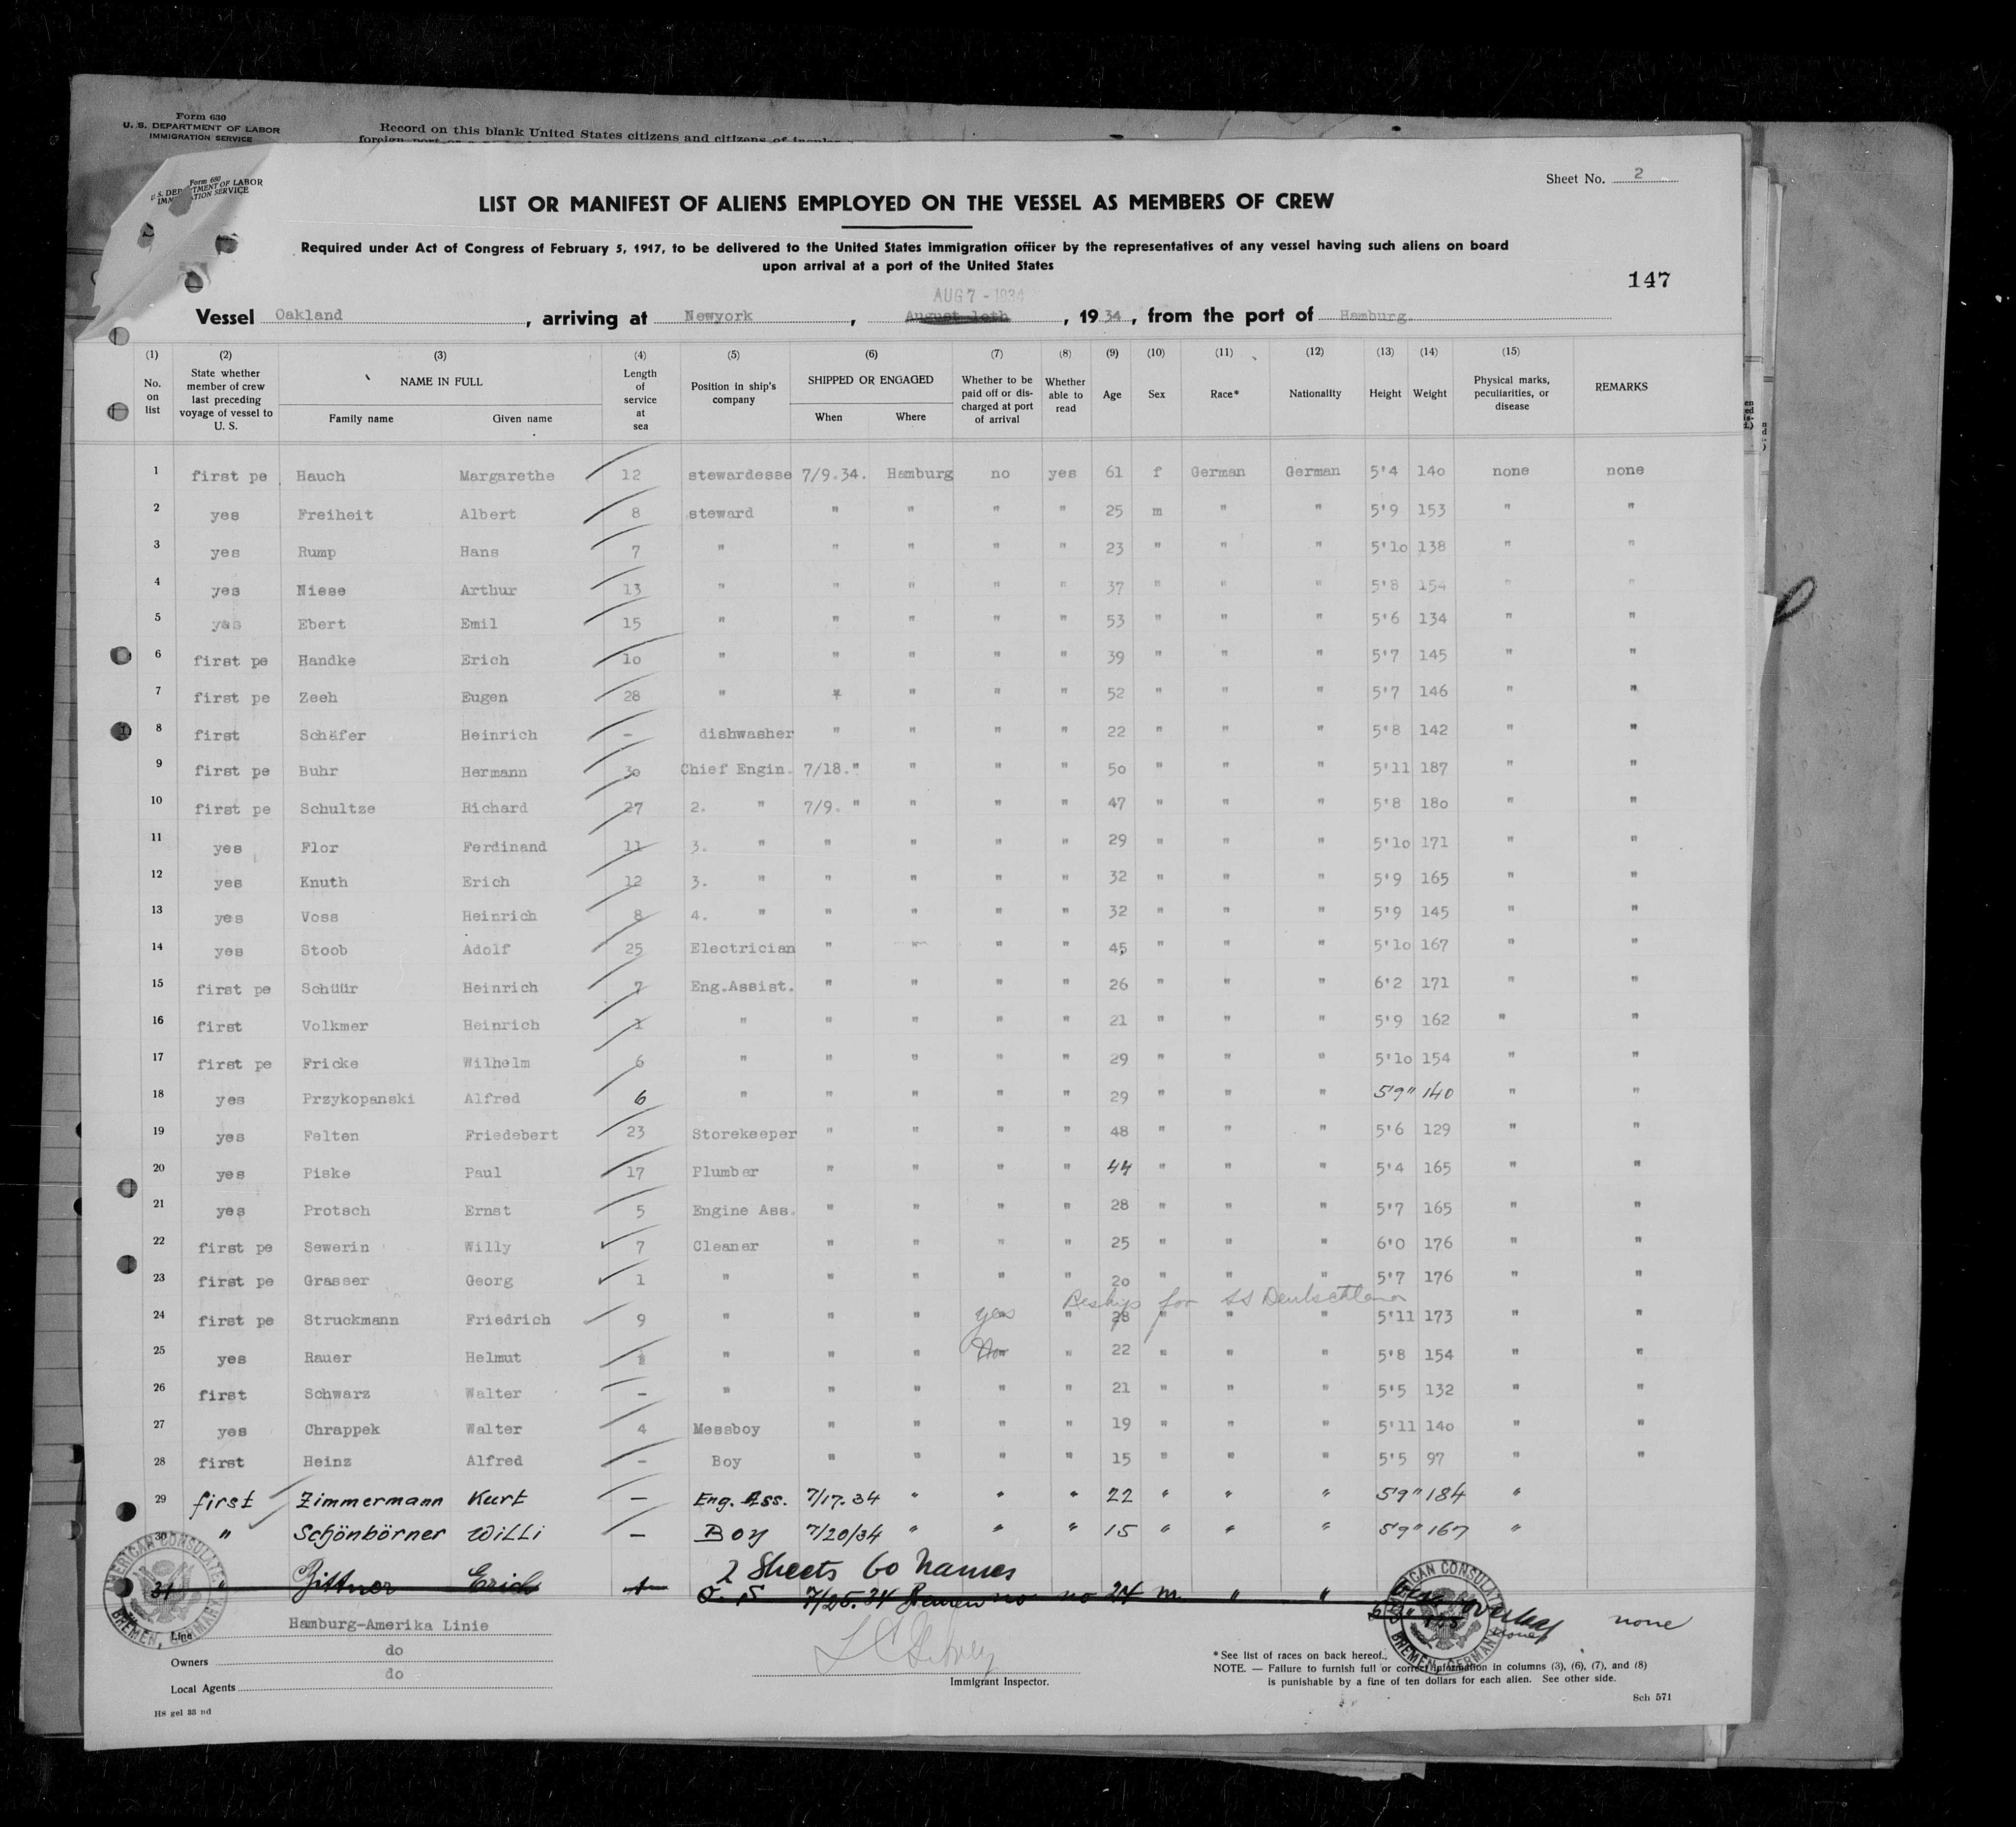 Form 630
U. S. DEPARTMENT OF LABOR
IMMIGRATION SERVICE
Record on this blank United States citizens and citizens of insular
foreign port
Form 680
U. S. DEPARTMENT OF LABOR
IMMIGRATION SERVICE
Sheet No. 2
LIST OR MANIFEST OF ALIENS EMPLOYED ON THE VESSEL AS MEMBERS OF CREW
Required under Act of Congress of February 5, 1917, to be delivered to the United States immigration officer by the representatives of any vessel having such aliens on board
upon arrival at a port of the United States
147
AUG 7 - 1934
Vessel Oakland, arriving at Newyork, August 10th, 1934, from the port of Hamburg.
(1) (2) (3) (4) (5) (6) (7) (8) (9) (10) (11) (12) (13) (14) (15)
No. on list State whether member of crew last preceding voyage of vessel to U. S. NAME IN FULL Family name Given name Length of service at sea Position in ship's company SHIPPED OR ENGAGED When Where Whether to be paid off or discharged at port of arrival Whether able to read Age Sex Race* Nationality Height Weight Physical marks, peculiarities, or disease REMARKS
1 first pe Hauch Margarethe 12 stewardesse 7/9.34. Hamburg no yes 61 f German German 5'4 140 none none
2 yes Freiheit Albert 8 steward " " " " 25 m " " 5'9 153 " "
3 yes Rump Hans 7 " " " " " 23 " " " 5'10 138 " "
4 yes Niese Arthur 13 " " " " " 37 " " " 5'8 154 " "
5 yes Ebert Emil 15 " " " " " 53 " " " 5'6 134 " "
6 first pe Handke Erich 10 " " " " " 39 " " " 5'7 145 " "
7 first pe Zeeh Eugen 28 " " " " " 52 " " " 5'7 146 " "
8 first Schäfer Heinrich - dishwasher " " " " 22 " " " 5'8 142 " "
9 first pe Buhr Hermann 30 Chief Engin. 7/18." " " " 50 " " " 5'11 187 " "
10 first pe Schultze Richard 27 2. " 7/9. " " " " 47 " " " 5'8 180 " "
11 yes Flor Ferdinand 11 3. " " " " " 29 " " " 5'10 171 " "
12 yes Knuth Erich 12 3. " " " " " 32 " " " 5'9 165 " "
13 yes Voss Heinrich 8 4. " " " " " 32 " " " 5'9 145 " "
14 yes Stoob Adolf 25 Electrician " " " " 45 " " " 5'10 167 " "
15 first pe Schüür Heinrich 7 Eng.Assist. " " " " 26 " " " 6'2 171 " "
16 first Volkmer Heinrich 1 " " " " " 21 " " " 5'9 162 " "
17 first pe Fricke Wilhelm 6 " " " " " 29 " " " 5'10 154 " "
18 yes Przykopanski Alfred 6 " " " " " 29 " " " 5'9" 140 " "
19 yes Felten Friedebert 23 Storekeeper " " " " 48 " " " 5'6 129 " "
20 yes Piske Paul 17 Plumber " " " " 44 " " " 5'4 165 " "
21 yes Protsch Ernst 5 Engine Ass. " " " " 28 " " " 5'7 165 " "
22 first pe Sewerin Willy 7 Cleaner " " " " 25 " " " 6'0 176 " "
23 first pe Grasser Georg 1 " " " " " 20 " " " 5'7 176 " "
Reship for SS Deutschland
24 first pe Struckmann Friedrich 9 " " " yes " 28 " " " 5'11 173 " "
25 yes Rauer Helmut " " " " 22 " " " 5'8 154 " "
26 first Schwarz Walter - " " " " " 21 " " " 5'5 132 " "
27 yes Chrappek Walter 4 Messboy " " " " 19 " " " 5'11 140 " "
28 first Heinz Alfred - Boy " " " " 15 " " " 5'5 97 " "
29 first Zimmermann Kurt - Eng. Ass. 7/17.34 " " " 22 " " " 5'9" 184 "
30 " Schönbörner Willi - Boy 7/20/34 " " " 15 " " " 5'9" 167 "
2 Sheets 60 Names
31 " Bittner Erich O. S. 7/25.34 Bremen no no 24 m. " " none
AMERICAN CONSULATE BREMEN, GERMANY
AMERICAN CONSULATE BREMEN, GERMANY
Line Hamburg-Amerika Linie
Owners do
Local Agents do
Immigrant Inspector.
* See list of races on back hereof.
NOTE. — Failure to furnish full or correct information in columns (3), (6), (7), and (8)
is punishable by a fine of ten dollars for each alien. See other side.
HS gel 33 nd
Sch 571